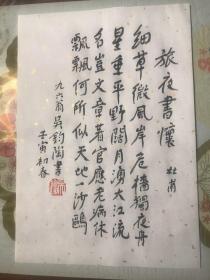 旅夜書懷
杜甫
細草微風岸危檣獨夜舟
星垂平野闊月湧大江流
名豈文章著官應老病休
飄飄何所似天地一沙鷗
九六翁吳鈞陶書
壬寅初春